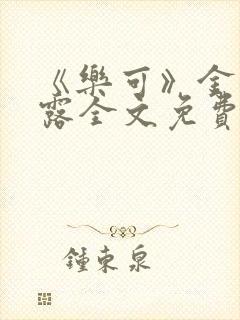 《樂可》金
露全文免費
鍾東泉